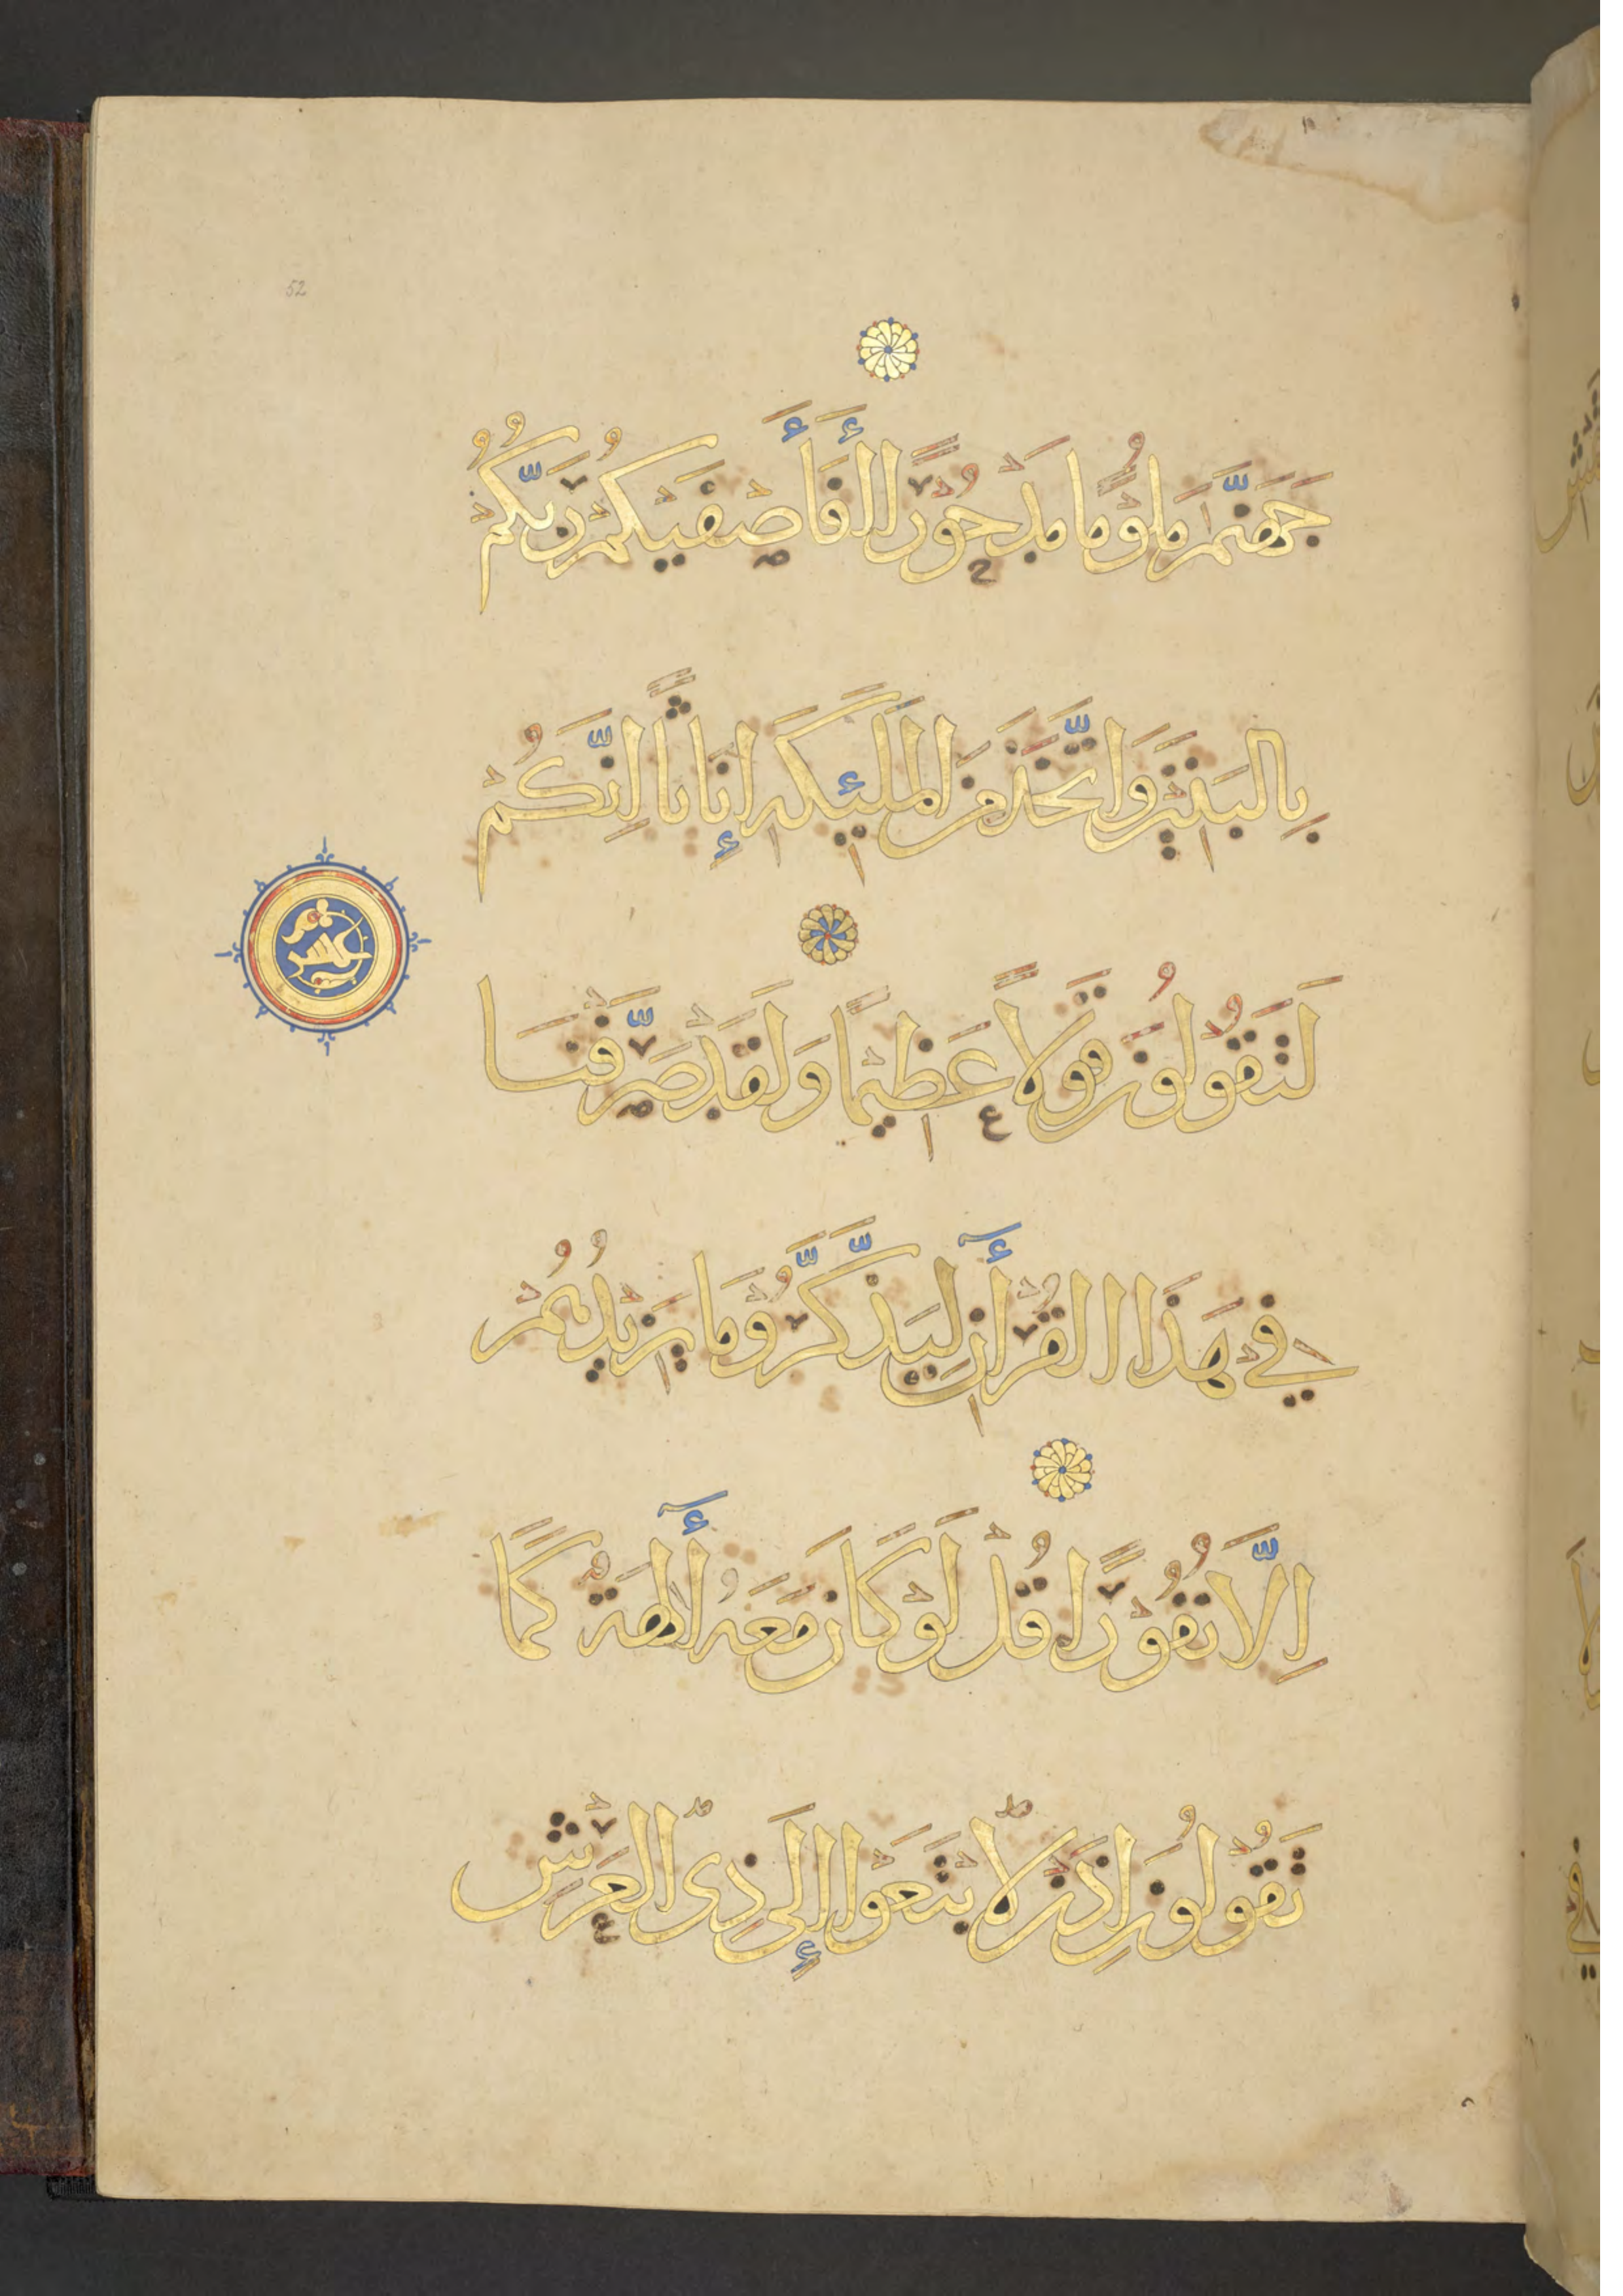 52
جَهَنَّمَ مَلُومًا مَدْحُورًا أَفَأَصْفَيْكُمْ رَبُّكُمْ
بِالبَنِينَ وَاتَّخَذَ مِنَ المَلَئِكَةِ إِنَاثًا إِنَّكُمْ
لَتَقُولُونَ قَوْلاً عَظِيمًا وَلَقَدْ صَرَّفْنَا
فِي هَذَا القُرْأَنِ لِيَذَّكَّرُوا وَمَا يَزِيدُهُمْ
إِلَّا نُفُورًا قُلْ لَوْ كَانَ مَعَهُ أَلِهَةٌ كَمَا
تَقُولُونَ إِذًا لَابْتَغَوْا إِلَى ذِي العَرْشِ